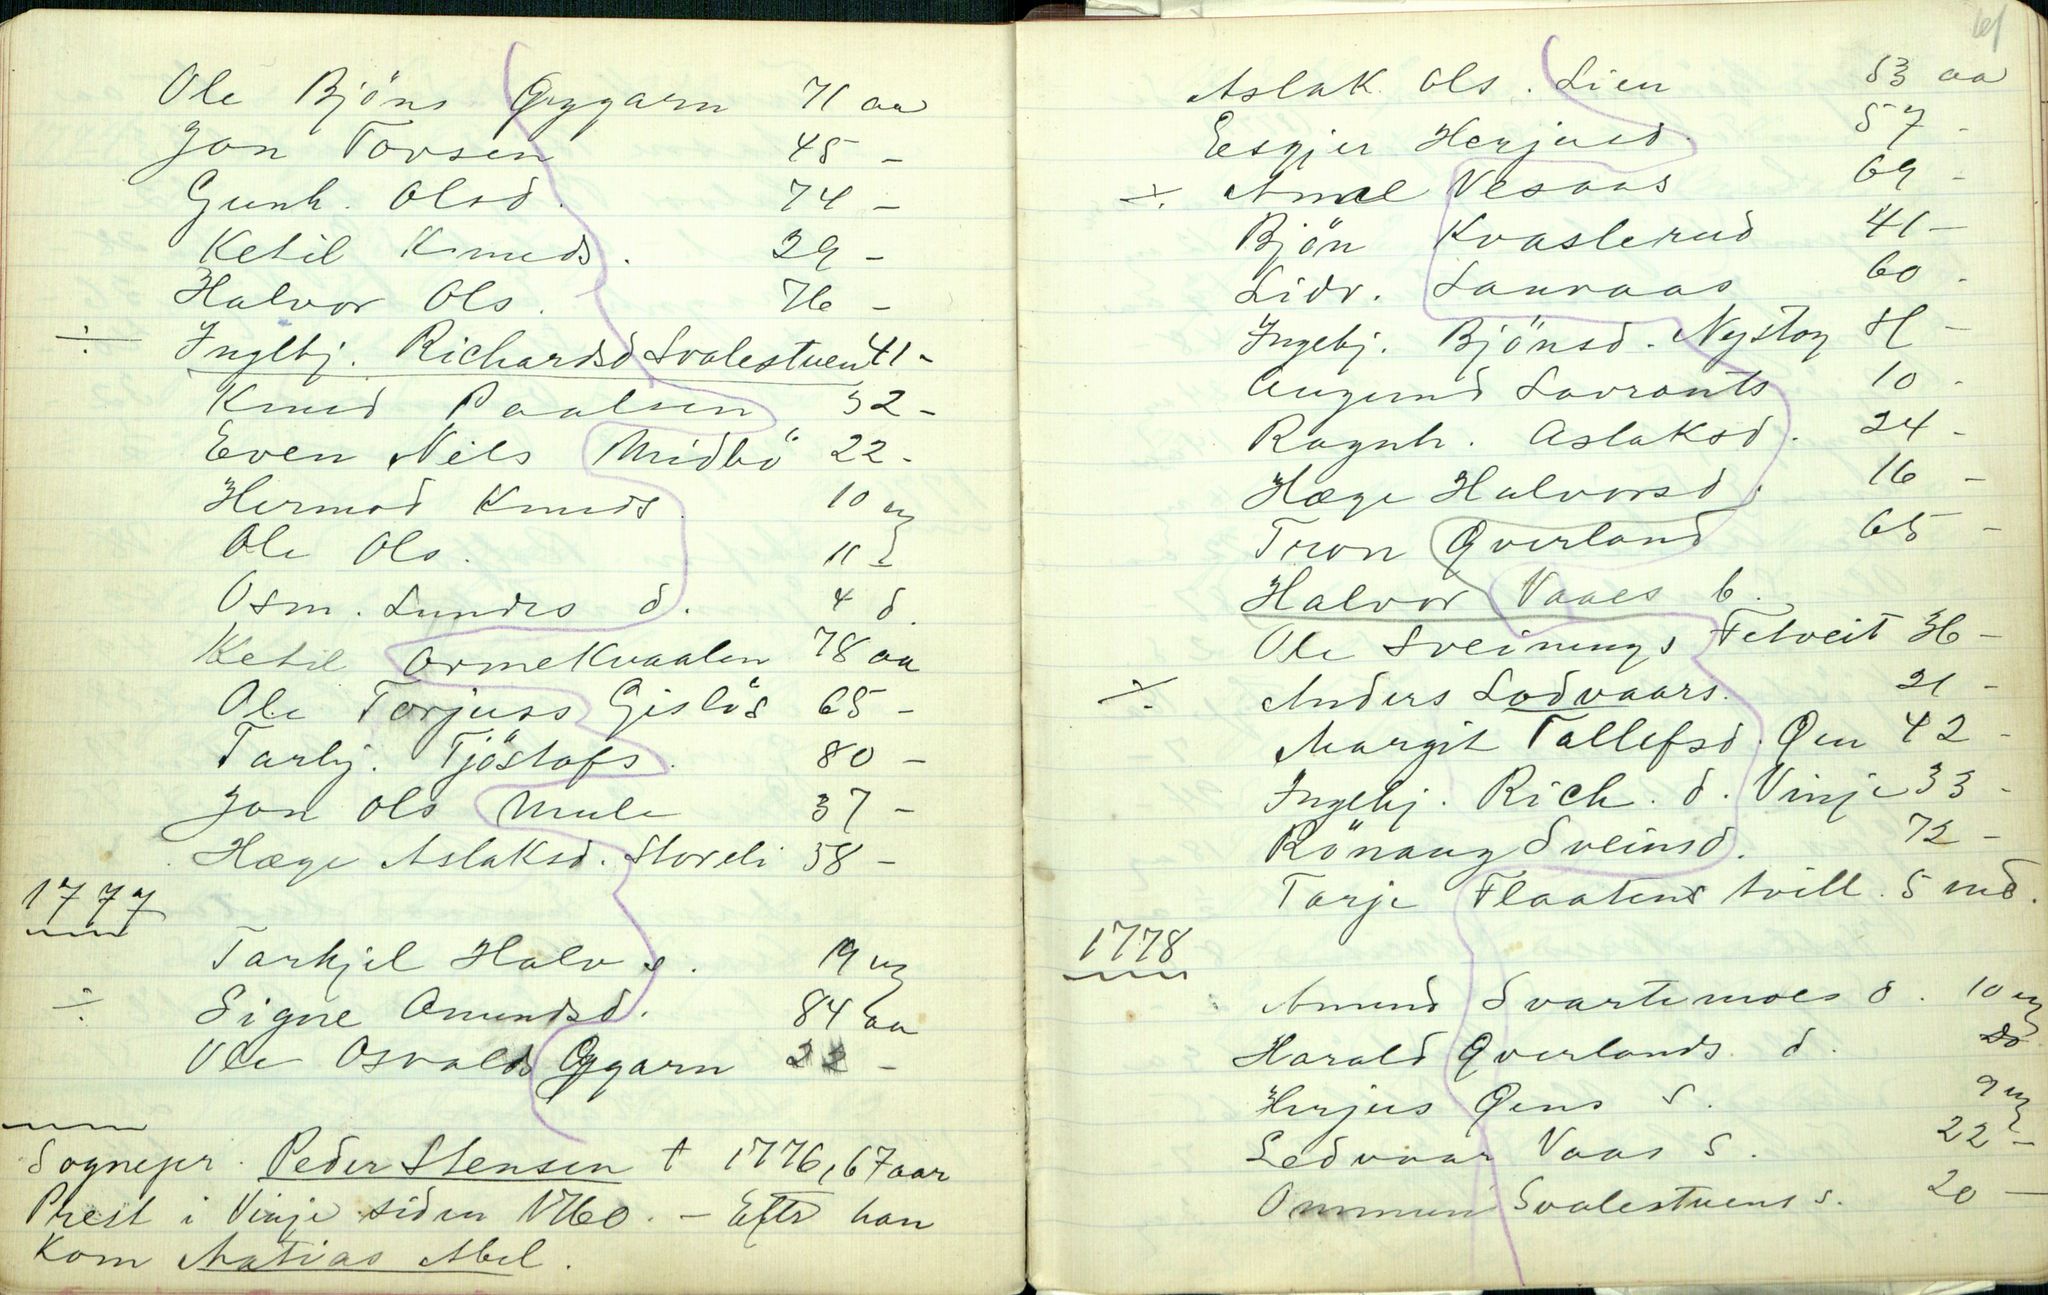 Ole Bjöns Øygarn 71 aa
Jon Tovsen 45 -
Gunh. Olsd. 74 -
Ketil Knuds. 29 -
Halvor Ols. 76 -
÷ Ingebj. Richardsd Svalestuen 41 -
Knud Paalsen 32 -
Even Nils Midbö 22 -
Hermod Knuds. 10 u
Ole Ols. 11
Osm. Lundes d. 4 d.
Ketil Ormekvaalen 78 aa
Ole Torjuss Gislös 65 -
Tarbj. Tjöstofs. 80 -
Jon Ols Mule 37 -
Hæge Aslaksd. Storeli 58 -
1777
Tarkjel Halv s. 19 u
÷ Signe Amundsd. 84 aa
Ole Osvalds Øygarn 22 -
Sognepr. Peder Stensen † 1776, 67 aar
Prest i Vinje siden 1760. - Efter han
kom Matias Abel.
61
Aslak Ols. Lien 53 aa
Esgjer Herjusd. 57 -
÷ Amel Vesaas 69 -
Bjön Kvaslerud 41 -
Lidv. Sauraas 60 -
Ingebj. Bjönsd. Nystog
Augund Lavrants 10 -
Ragnh. Aslaksd. 24 -
Hæge Halvorsd. 16 -
Tron Øverland 65 -
Halvor Vaaes b.
Ole Sveinungs Felveit 36 -
÷ Anders Lodvaars. 21 -
Margit Tallefsd. Øen 42 -
Ingebj. Rich. d. Vinje 33 -
Rönaug Sveinsd. 72 -
Tarje Flaatens tvill. 5 md.
1778
Amund Svartemoes d. 10 u
Harald Øverlands d. do
Herjus Øens s. 9 u
Ledvaar Vaas s. 22 -
Ommun Svalestuens s. 20 -